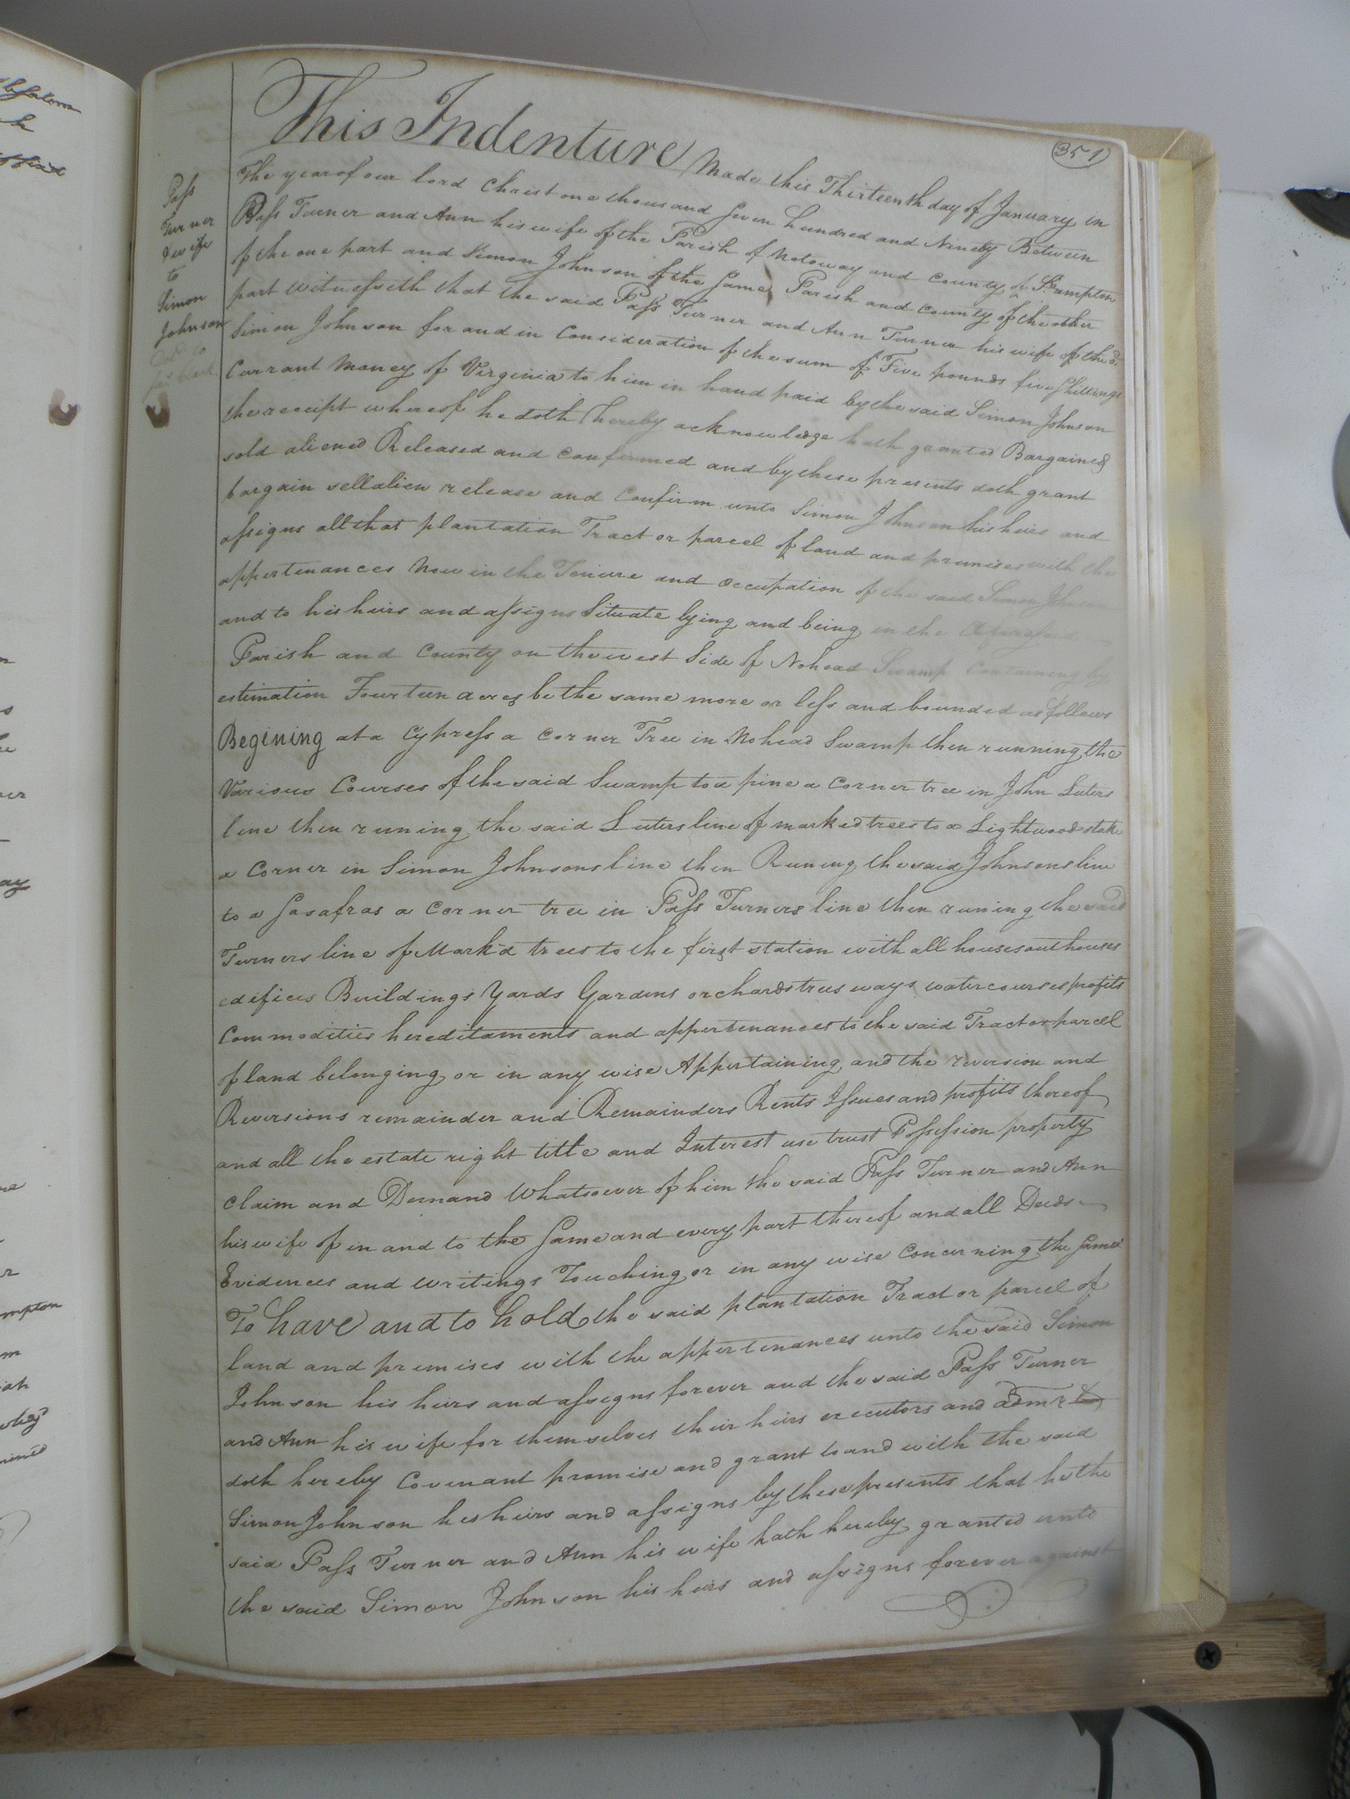 351
Pass
Turner
& wife
to
Simon
Johnson
This Indenture Made this Thirteenth day of January in
The year of our lord Christ one thousand Seven hundred and Ninety Between
Pass Turner and Ann his wife of the Parish of Notoway and County of S.hampton
of the one part and Simon Johnson of the Same Parish and County of the other
part witnesseth that the said Pass Turner and Ann Turner his wife of the sd.
Simon Johnson for and in Consideration of the sum of Five pounds five Shillings
Currant Money of Virginia to him in hand paid by the said Simon Johnson
the receipt whereof he doth hereby acknowledge hath granted Bargained
sold aliened Released and confirmed and by these presents doth grant
bargain sell alien release and Confirm unto Simon Johnson his heirs and
assigns all that plantation Tract or parcel of land and premises with the
appertenances Now in the Tenure and Occupation of the said Simon Johnson
and to his heirs and assigns Situate lying and being in the Aforesaid
Parish and County on the west Side of Nohead Swamp Containing by
estimation Fourteen acres be the same more or less and bounded as follows
Begining at a Cypress a Corner Tree in Nohead Swamp then running the
Various Courses of the said Swamp to a pine a Corner tree in John Luters
line then runing the said Luters line of marked trees to a Lightwood stake
a Corner in Simon Johnsons line then Runing the said Johnsons line
to a Sasafras a corner tree in Pass Turners line then runing the said
Turners line of Mark'd trees to the first station with all houses outhouses
edifices Buildings Yards Gardens orchards trees ways watercourses profits
Commodities hereditaments and appertenances to the said Tract or parcel
of land belonging or in any wise Appertaining and the reversion and
Reversions remainder and Remainders Rents Issues and profits thereof
and all the estate right title and Interest use trust Possession property
Claim and Demand Whatsoever of him the said Pass Turner and Ann
his wife of in and to the Same and every part thereof and all Deeds
Evidences and writings Touching or in any wise Concerning the Same
To have and to hold the said plantation Tract or parcel of
land and premises with the appertenances unto the said Simon
Johnson his heirs and assigns forever and the said Pass Turner
and Ann his wife for themselves their heirs executors and admrs
doth hereby Covenant promise and grant to and with the said
Simon Johnson his heirs and assigns by these presents that he the
said Pass Turner and Ann his wife hath hereby granted unto
the said Simon Johnson his heirs and assigns forever against